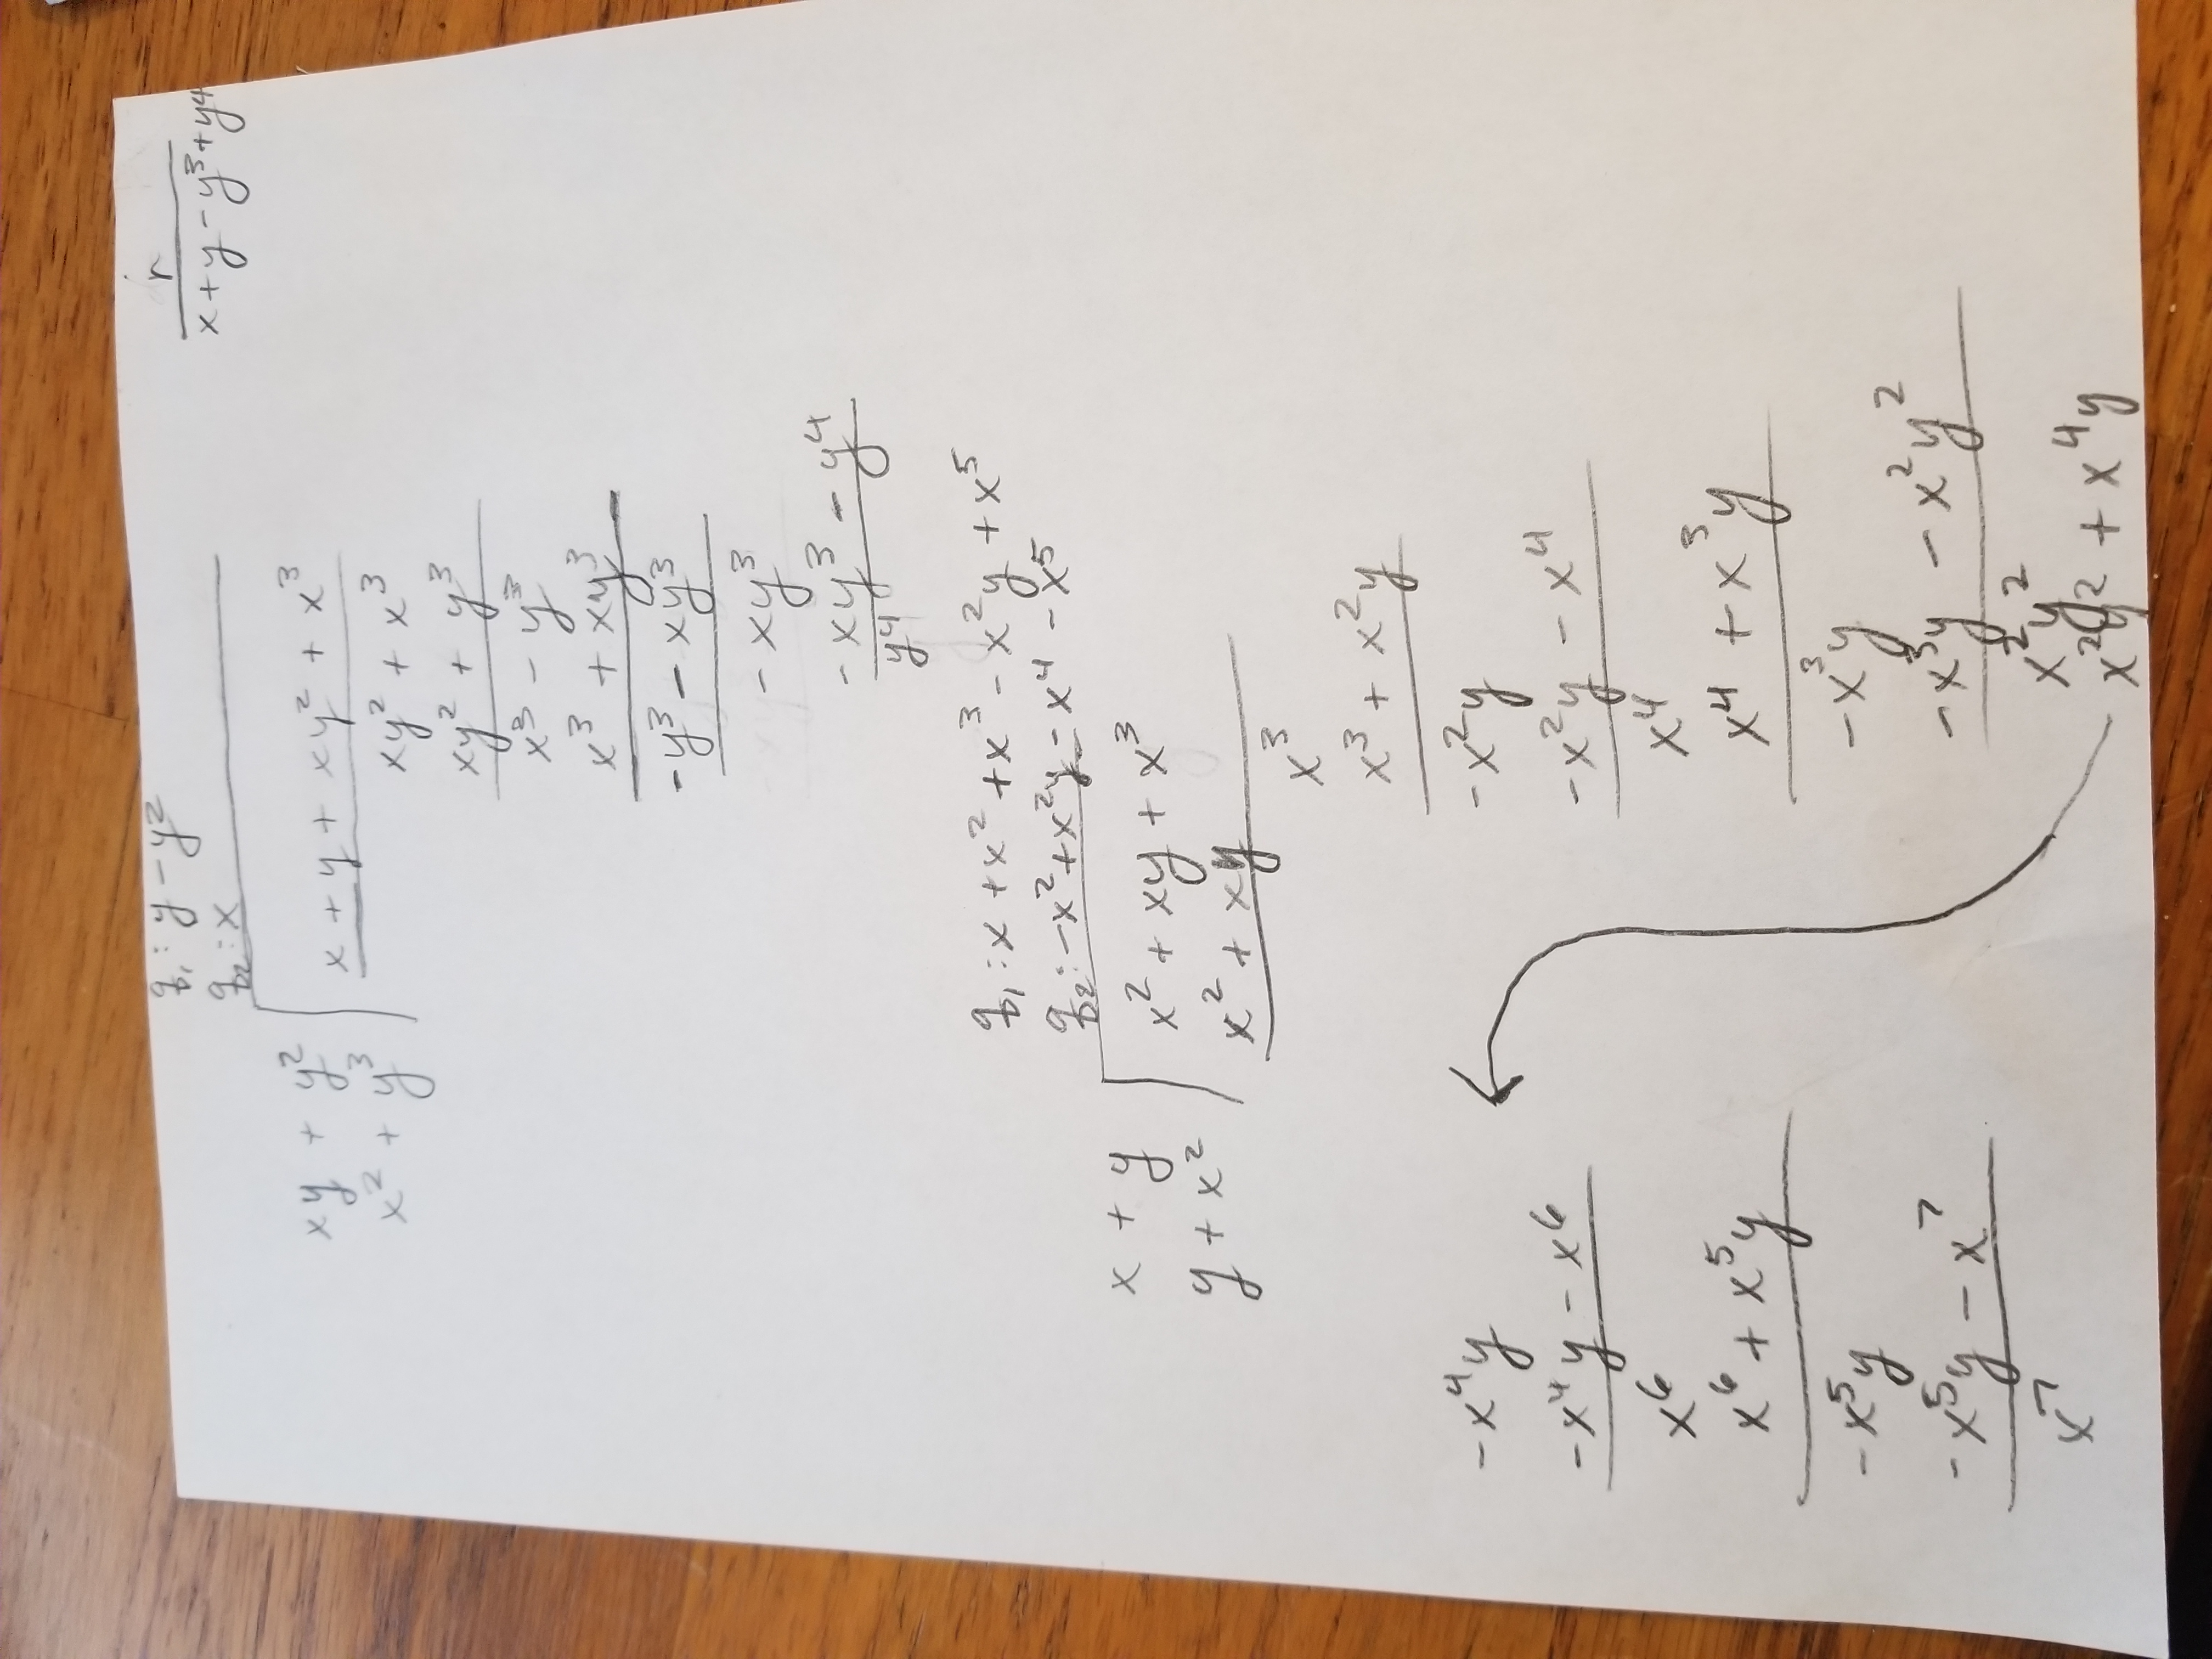 q₁: y - y²
q₂: x
r
x + y - y³ + y⁴
xy + y²
x² + y³
x + y + xy² + x³
xy² + x³
xy² + y³
x³ - y³
x³ + xy³
-y³ - xy³
- xy³
- xy³ - y⁴
y⁴
q₁: x + x² + x³ - x²y + x⁵
q₂: -x² + x²y - x⁴ - x⁵
x + y
y + x²
x² + xy + x³
x² + xy
x³
x³ + x²y
-x²y
-x²y - x⁴
x⁴
x⁴ + x³y
-x³y
-x³y - x²y²
x²y²
x²y² + x⁴y
-x⁴y
-x⁴y - x⁶
x⁶
x⁶ + x⁵y
-x⁵y
-x⁵y - x⁷
x⁷